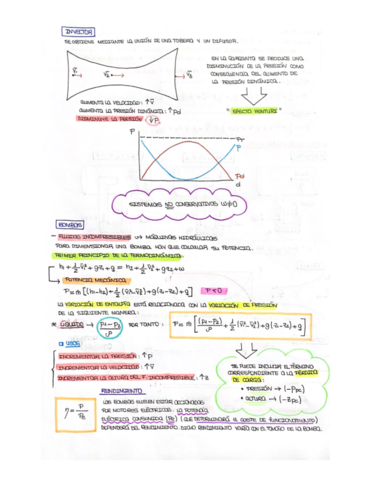 INYECTOR
SE OBTIENE MEDIANTE LA UNIÓN DE UNA TOBERA Y UN DIFUSOR.
EN LA GARGANTA SE PRODUCE UNA
DISMINUCIÓN DE LA PRESIÓN COMO
CONSECUENCIA DEL AUMENTO DE
LA PRESIÓN DINÁMICA.
AUMENTA LA VELOCIDAD: ↑V̄
AUMENTA LA PRESIÓN DINÁMICA: ↑Pd
DISMINUYE LA PRESIÓN (↓P)
" EFECTO VENTURI "
P
PT
P
Pd
d
SISTEMAS NO CONSERVATIVOS W≠0
BOMBAS
- FLUIDOS INCOMPRESIBLES → MÁQUINAS HIDRÁULICAS
PARA DIMENSIONAR UNA BOMBA HAY QUE CALCULAR SU POTENCIA.
PRIMER PRINCIPIO DE LA TERMODINÁMICA.
h₁ + ½ v₁² + gz₁ + q = h₂ + ½ v₂² + gz₂ + w
POTENCIA MECÁNICA
P = ṁ [(h₁-h₂) + ½ (v₁²-v₂²) + g(z₁-z₂) + q]
P < 0
LA VARIACIÓN DE ENTALPÍA ESTÁ RELACIONADA CON LA VARIACIÓN DE PRESIÓN
DE LA SIGUIENTE MANERA:
* LÍQUIDO → (P₁-P₂)/ρ POR TANTO: P = ṁ [(P₁-P₂)/ρ + ½ (v₁²-v₂²) + g(z₁-z₂) + q]
USOS
INCREMENTAR LA PRESIÓN: ↑P
INCREMENTAR LA VELOCIDAD: ↑V̄
INCREMENTAR LA ALTURA DEL F. INCOMPRESIBLE: ↑z
SE PUEDE INCLUIR EL TÉRMINO
CORRESPONDIENTE A LA PÉRDIDA
DE CARGA:
• PRESIÓN → (-Ppc)
• ALTURA → (-Zpc)
RENDIMIENTO
η = P/Pe
LAS BOMBAS SUELEN ESTAR ACCIONADAS
POR MOTORES ELÉCTRICOS. LA POTENCIA
ELÉCTRICA CONSUMIDA (Pe) (QUE DETERMINARÁ EL COSTE DE FUNCIONAMIENTO)
DEPENDERÁ DEL RENDIMIENTO. DICHO RENDIMIENTO VARÍA CON EL TAMAÑO DE LA BOMBA.